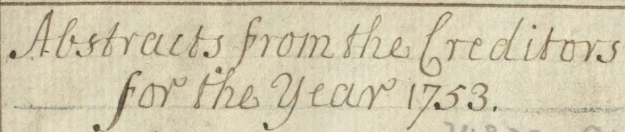 Abstracts from the Creditors
for the Year 1753.